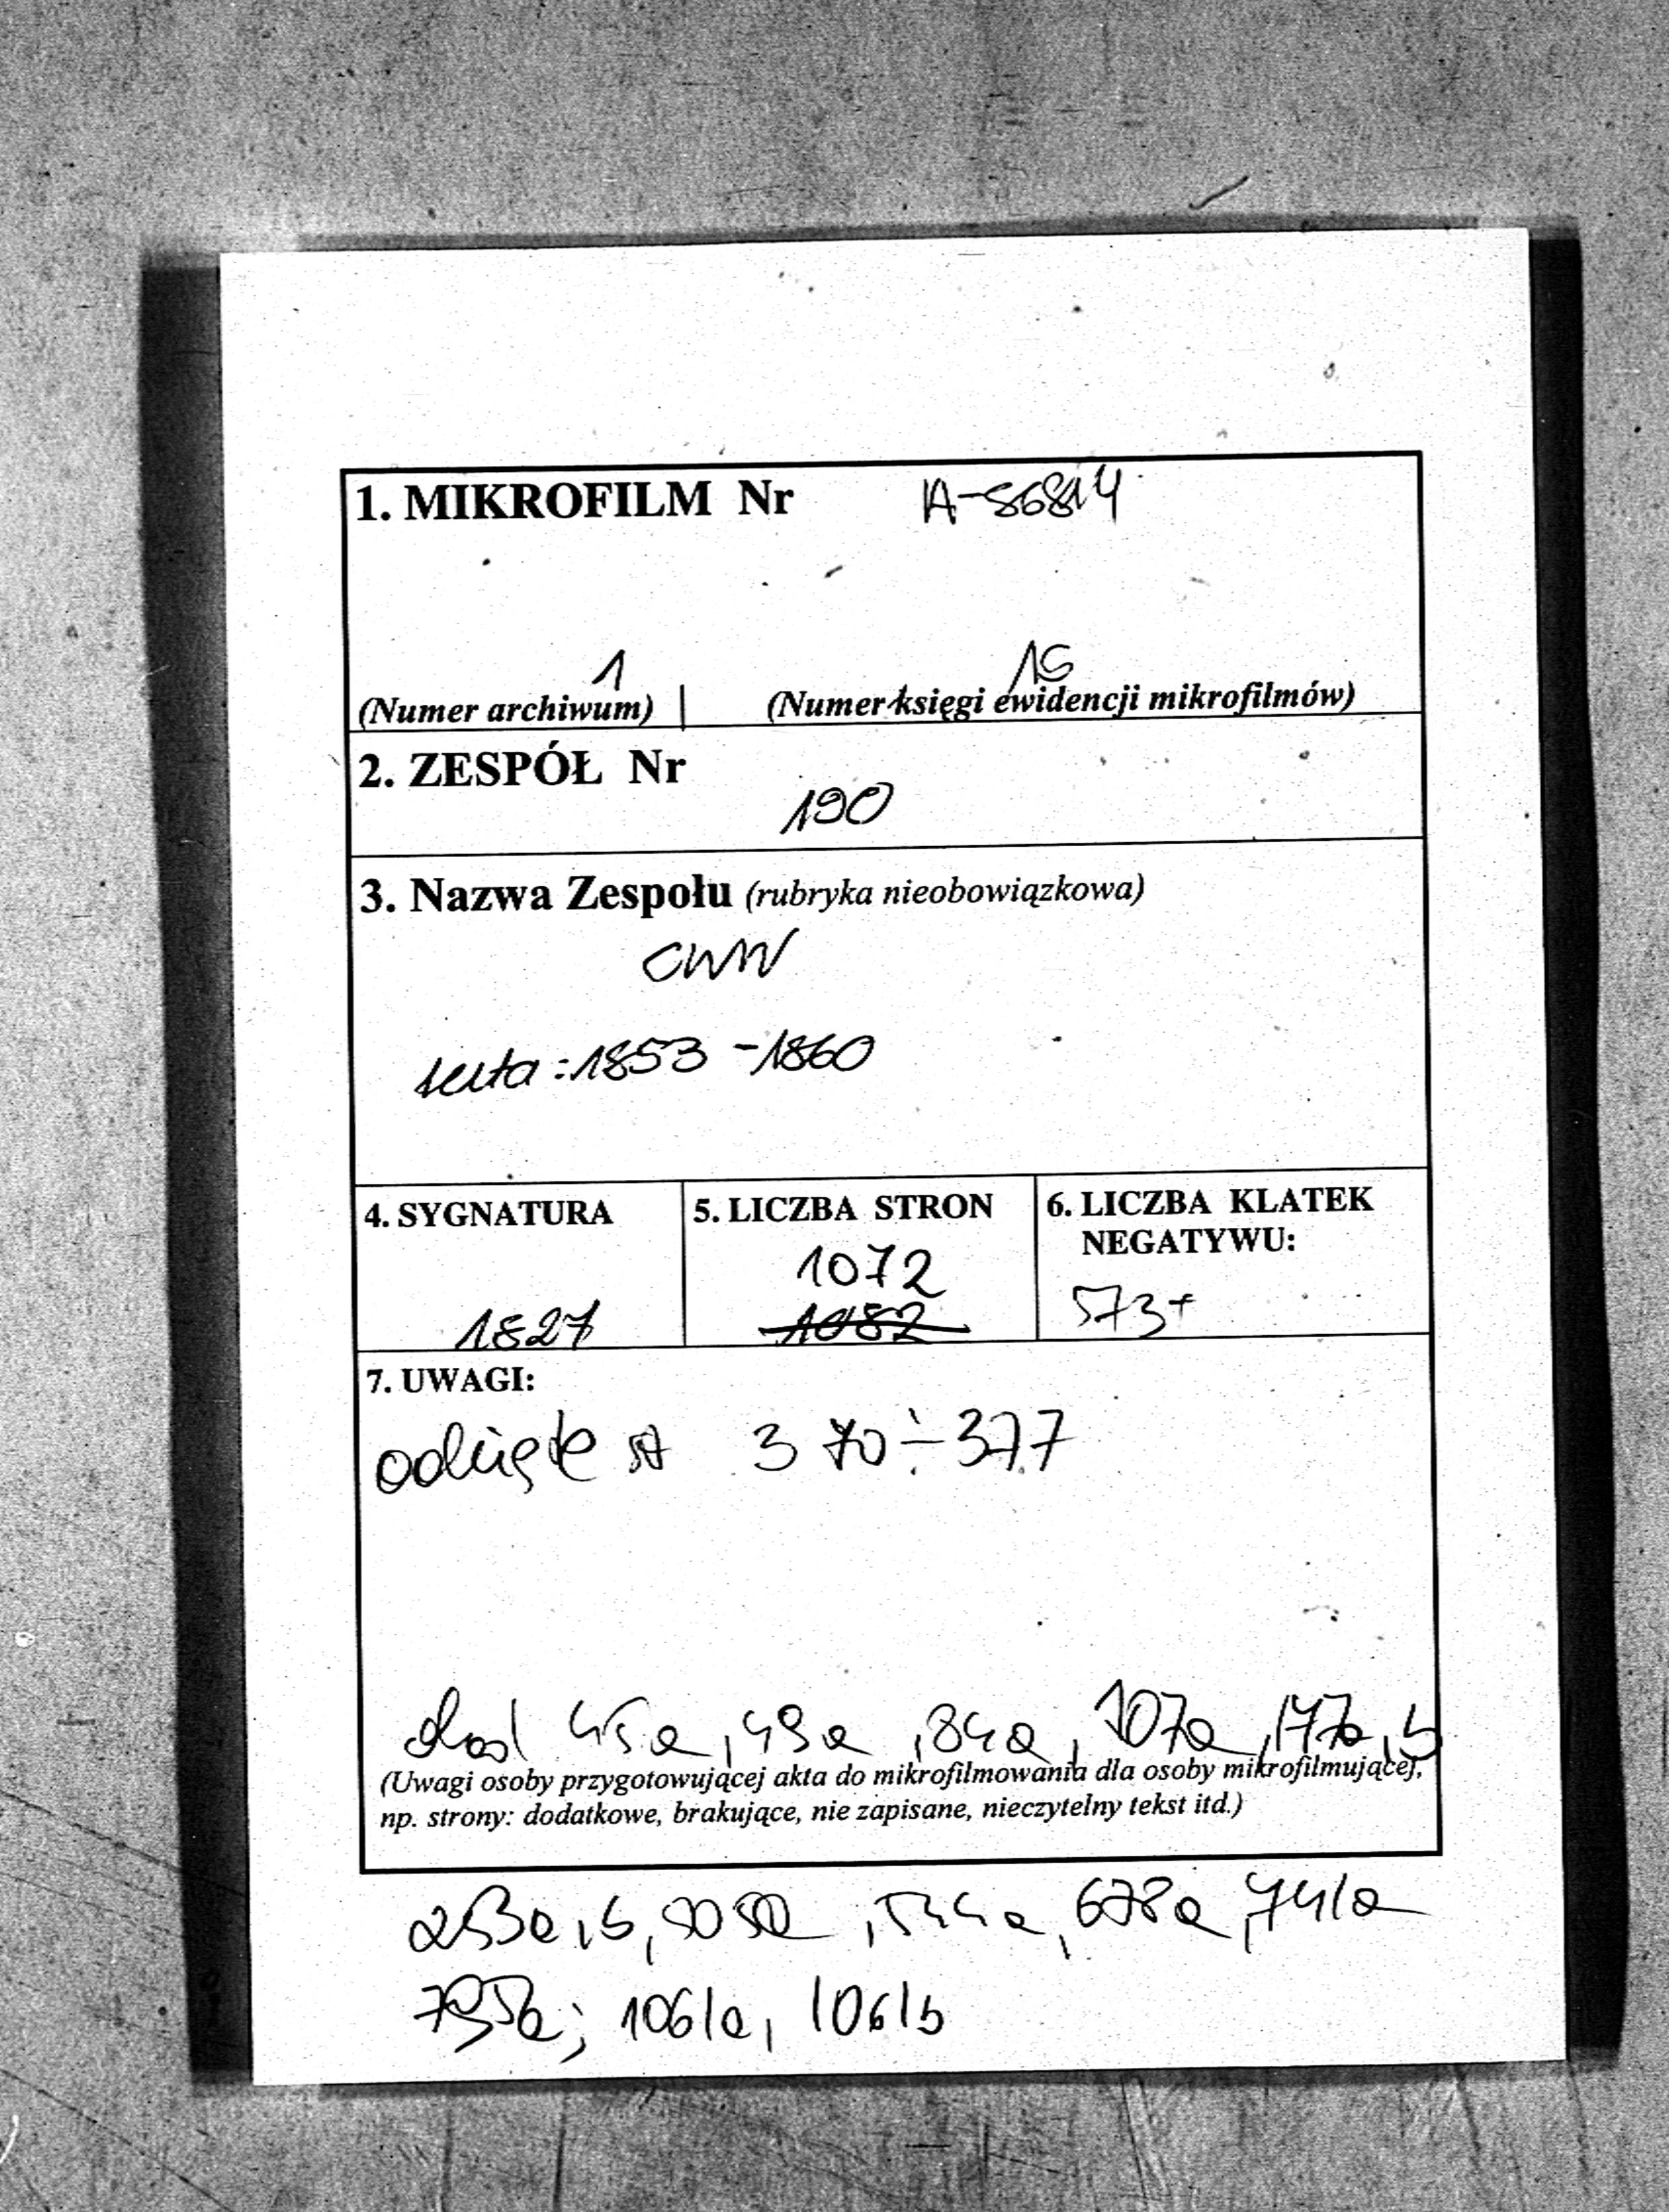 1. MIKROFILM Nr A-86814
1 15
(Numer archiwum) | (Numer księgi ewidencji mikrofilmów)
2. ZESPÓŁ Nr
190
3. Nazwa Zespołu (rubryka nieobowiązkowa)
CWW
1853 - 1860
4. SYGNATURA 5. LICZBA STRON 6. LICZBA KLATEK
NEGATYWU:
1072
1827 1082 573+
7. UWAGI:
370÷377
dod 45a, 49a, 84a, 107a, 147a, b
(Uwagi osoby przygotowującej akta do mikrofilmowania dla osoby mikrofilmującej,
np. strony: dodatkowe, brakujące, nie zapisane, nieczytelny tekst itd.)
253a, b, 544a, 678a, 741a
795a; 1061a, 1061b